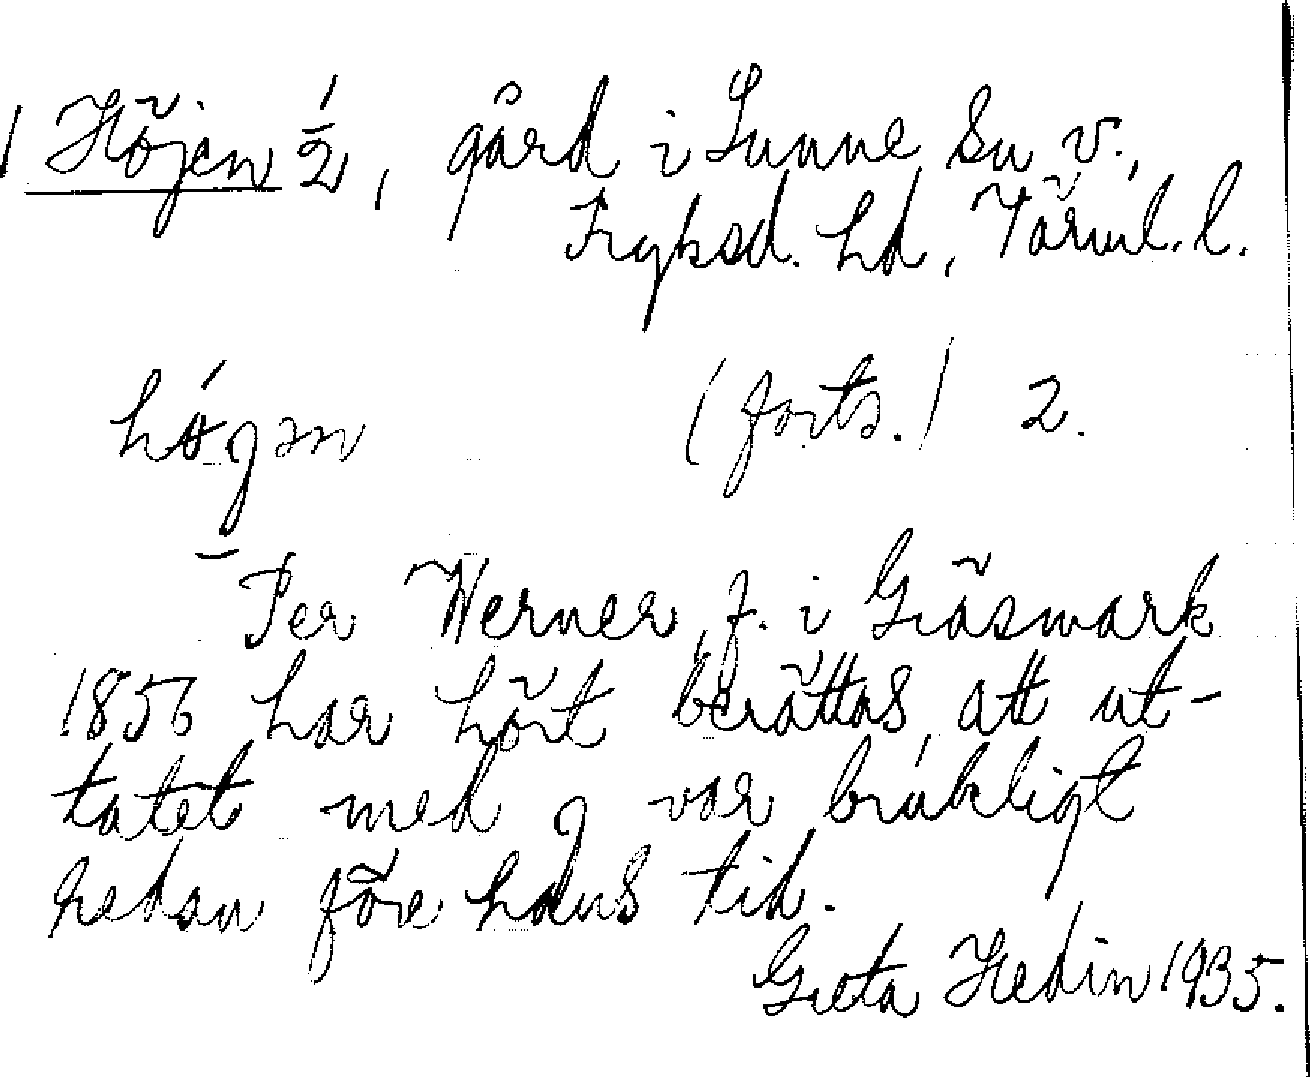 Höjen 1/2, gård i Sunne sn v.,
Fryksd. hd, Värml. l.
högen (forts.) 2.
Per Werner, f. i Gräsmark
1856 har hört berättas, att ut-
talet med g var brukligt
redan före hans tid.
Greta Hedin 1935.